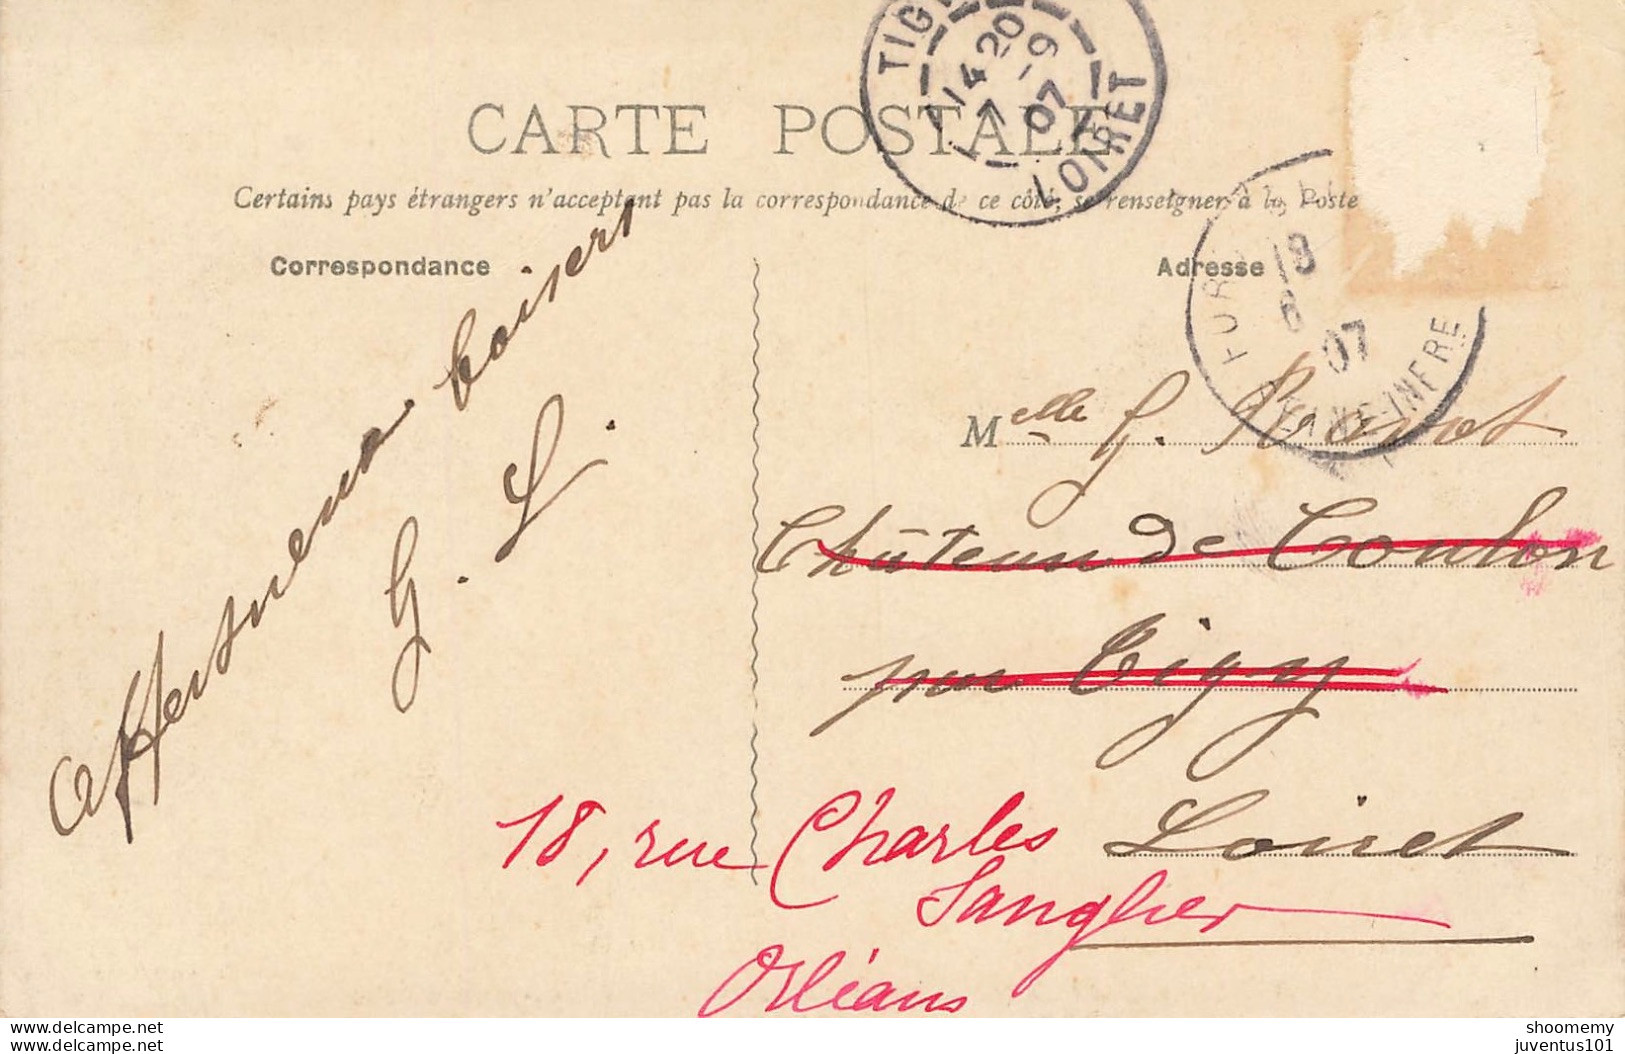 TIG
14 20
7 - 9
07
LOIRET
CARTE POSTALE
Certains pays étrangers n'acceptant pas la correspondance de ce côté, se renseigner à la Poste
Correspondance
Adresse
18
8
07
SEINE-INFRE
Affectueux baisers
G. L.
Melle G.
Château de Coulon
par Tigy
Loiret
18, rue Charles
Sanglier
Orléans
www.delcampe.net
www.delcampe.net
shoomemy
juventus101